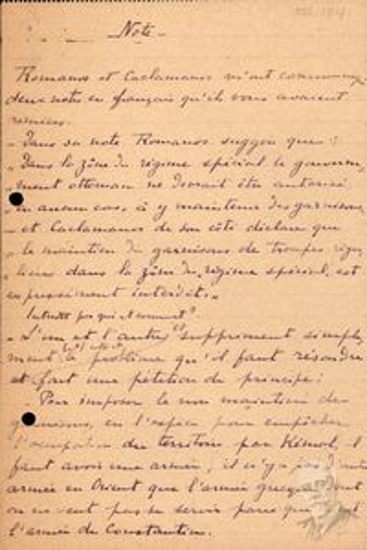 Note –
Romanos et Caclamanos m'ont communiqué
deux notes en français qu'ils vous avaient
remises.
– Dans sa note Romanos suggère que :
" Dans la zône du régime spécial le gouverne-
" ment ottoman ne devrait être autorisé
" en aucun cas, à y maintenir des garnisons
– et Caclamanos de son côté déclare que
" le maintien de garnisons de troupes régu-
" lières dans la zône du régime spécial est
expressément interdit. "
Interdit par qui et comment ?
– L'un et l'autre suppriment simple-
ment le problème qu'il faut résoudre
et font une pétition de principe :
Pour imposer le non maintien des
garnisons, en l'espèce pour empêcher
l'occupation du territoire par Kémal, il
faut avoir une armée ; il n'y a pas d'autre
armée en Orient que l'armée grecque
on ne veut pas se servir parce que
l'armée de Constantin.